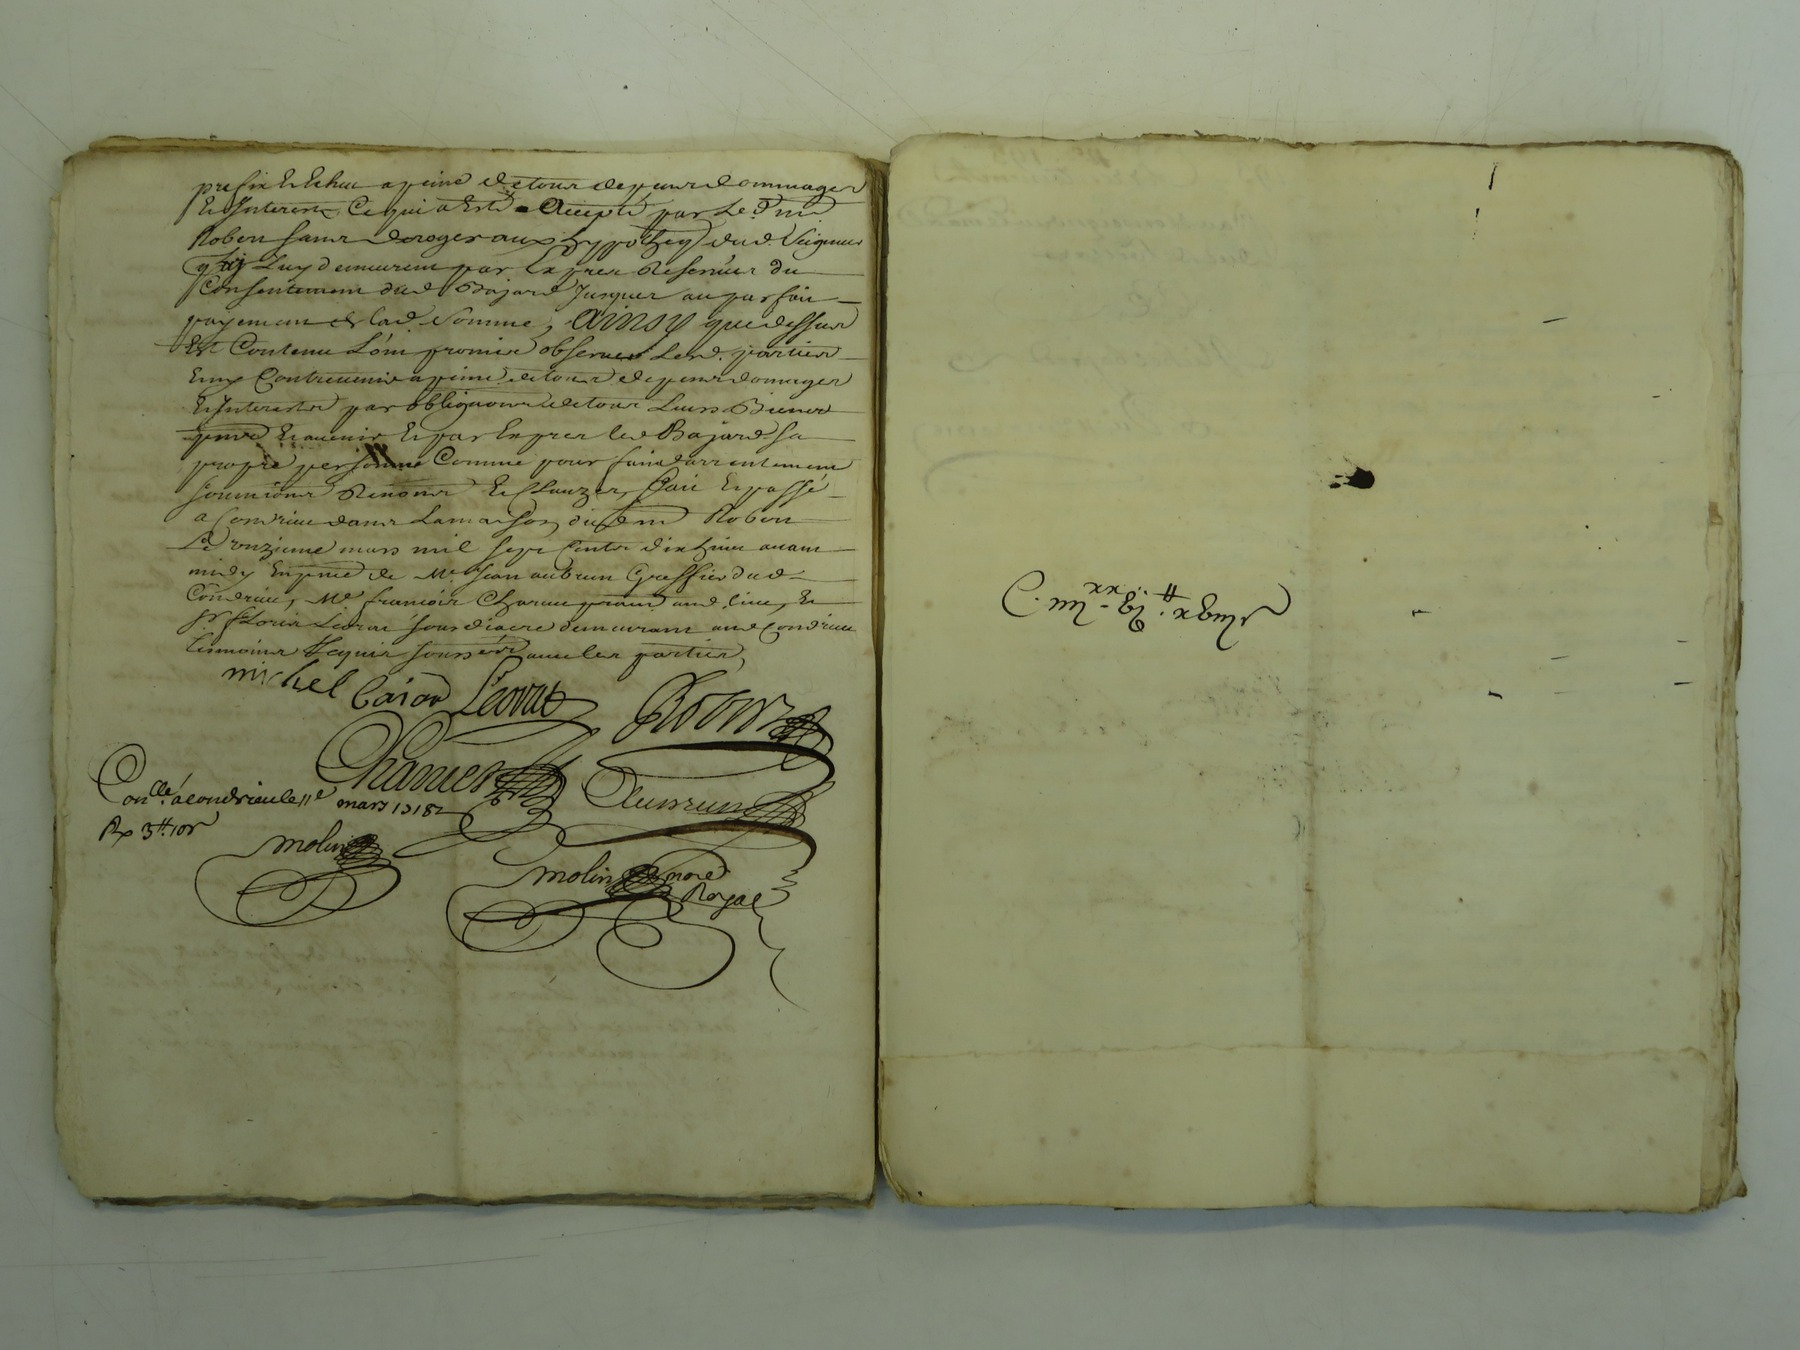 prefix et echeu a peine de tous depens dommages
et Interests, Ce qui a esté Accepté par le d. sr
Robert sans deroger aux hypotheq dud. Seigneur
quy Luy demeurent par Exprez Reservées du
Consentement dud Bajard Jusques au parfait
payement de lad. Somme, Ainsy que dessus
Est Contenu L'ont promis observer Lesd. parties
Et ny Contrevenir a peine de tous depens domages
et Interests par obligations de tous Leurs Biens
pnts et avenir Et par Exprez led Bajard sa
propre personne Comme pour fait darrentement
soumions Renonons Et Clauzes, fait et passé
a Condrieu dans La maison dud sr Robert
Le onzieme mars mil sept Cents dix huit avant
midy En pnce de Me Jean aubrun Greffier dud
Condrieu, Me francois and. lieu, et
sr Leorat sousdiacre demeurant aud Condrieu
tesmoins Requis soussignés avec les parties,
michel Baiard Leorat Robert
Aubrun
Conllé a condrieu le 11e mars 1718
Rx 3# 10s
molin
molin nore
Royal